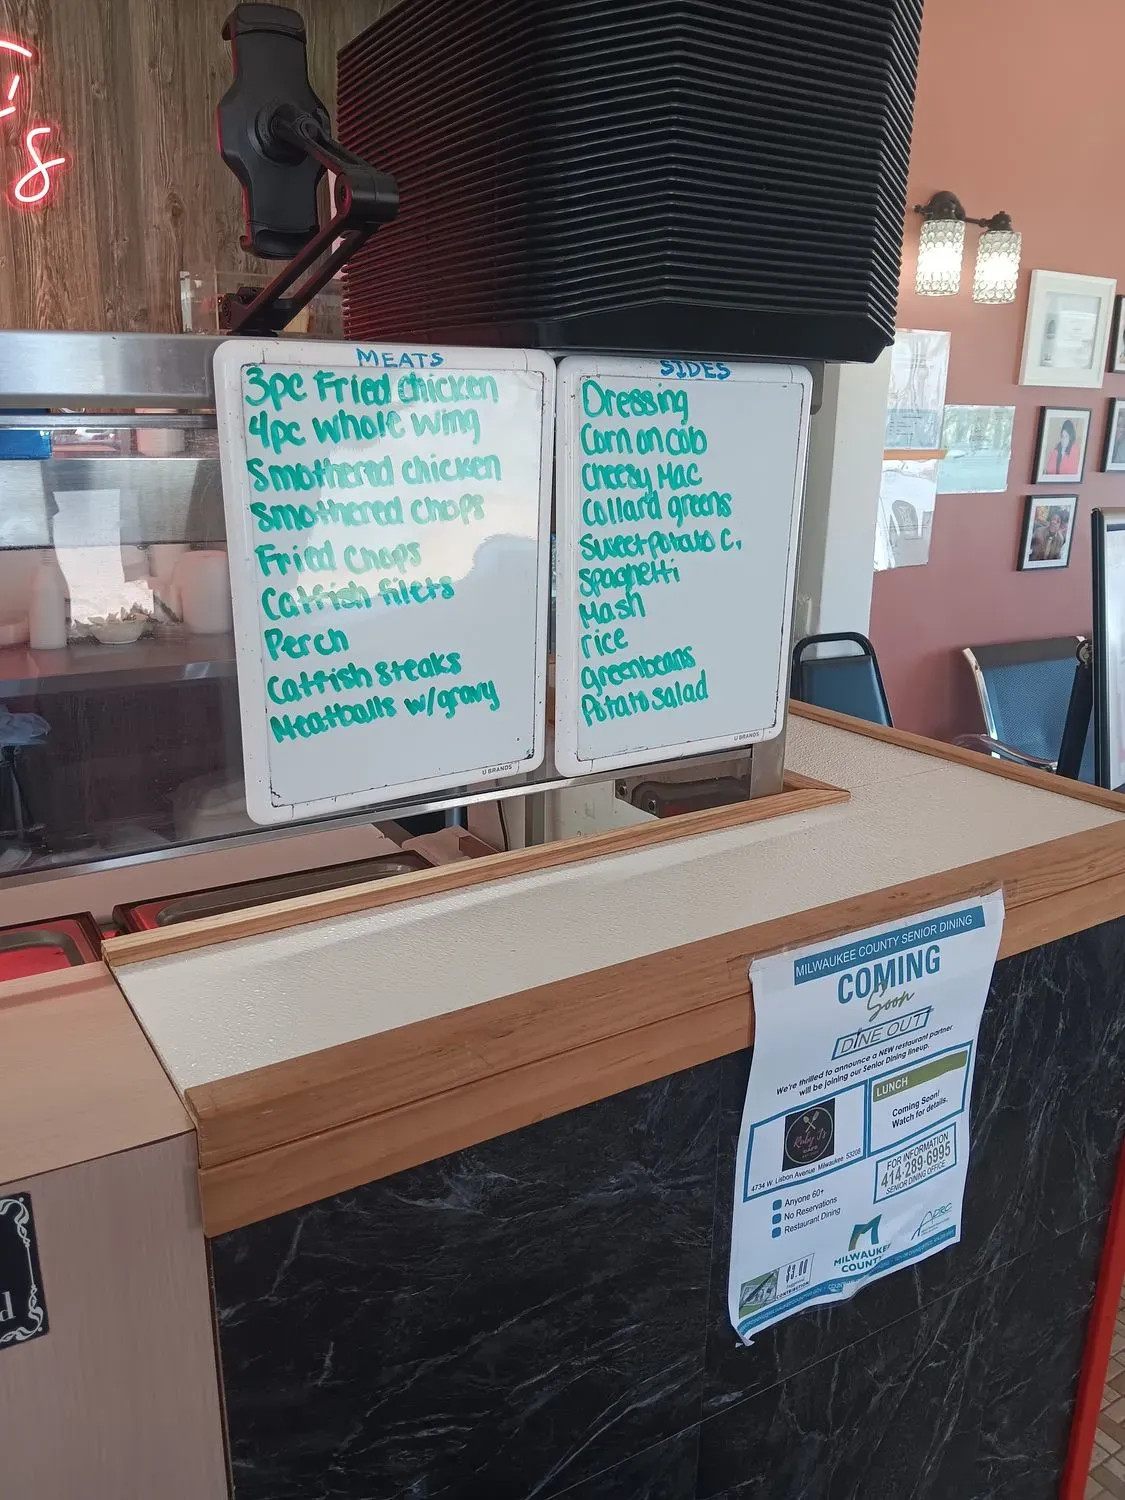 MEATS
3pc Fried chicken
4pc whole wing
Smothered chicken
Smothered Chops
Fried Chops
Catfish filets
Perch
Catfish Steaks
Meatballs w/gravy
U BRANDS
SIDES
Dressing
Corn on cob
Cheesy Mac
Collard greens
Sweet potato C.
Spaghetti
Mash
rice
greenbeans
Potato salad
U BRANDS
MILWAUKEE COUNTY SENIOR DINING
COMING
Soon
DINE OUT
We're thrilled to announce a NEW restaurant partner
will be joining our Senior Dining lineup.
Ruby J's
4734 W. Lisbon Avenue, Milwaukee 53208
LUNCH
Coming Soon!
Watch for details.
FOR INFORMATION
414-289-6995
SENIOR DINING OFFICE
Anyone 60+
No Reservations
Restaurant Dining
MILWAUKEE
COUNTY
ADRC
$3.00
CONTRIBUTION
's
d